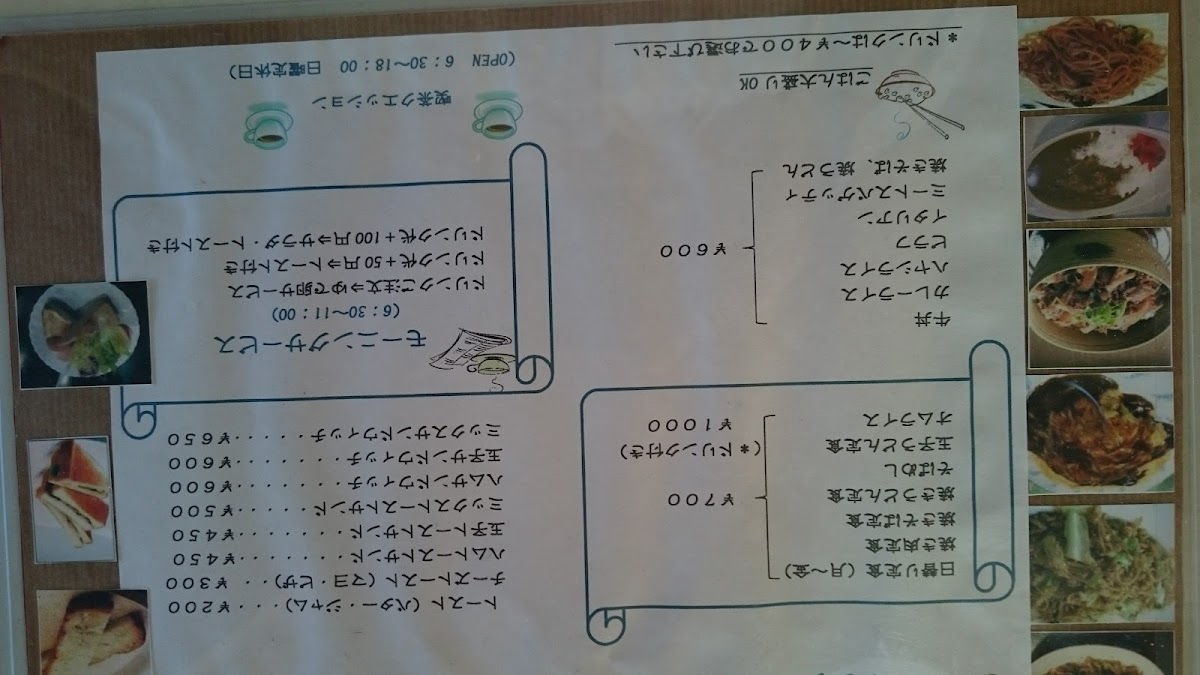 日替り定食（月～金）
焼き肉定食
焼きそば定食
焼きうどん定食
￥７００
そばめし
玉子うどん定食
（＊ドリンク付き）
オムライス
￥１０００
牛丼
カレーライス
ハヤシライス
ピラフ
￥６００
イタリアン
ミートスパゲッティ
焼きそば、焼うどん
ごはん大盛りOK
＊ドリンクは～￥４００でお選び下さい
トースト（バター・ジャム）・・・・￥２００
チーズトースト（マヨ・ピザ）・・・￥３００
ハムトーストサンド・・・・・・・￥４５０
玉子トーストサンド・・・・・・・￥４５０
ミックストーストサンド・・・・・￥５００
ハムサンドウィッチ・・・・・・・￥６００
玉子サンドウィッチ・・・・・・・￥６００
ミックスサンドウィッチ・・・・・・￥６５０
モーニングサービス
（６：３０～１１：００）
ドリンクご注文⇒ゆで卵サービス
ドリンク代＋50円⇒トースト付き
ドリンク代＋100円⇒サラダ・トースト付き
喫茶クエッション
（OPEN　６：３０～１８：００　日曜定休日）